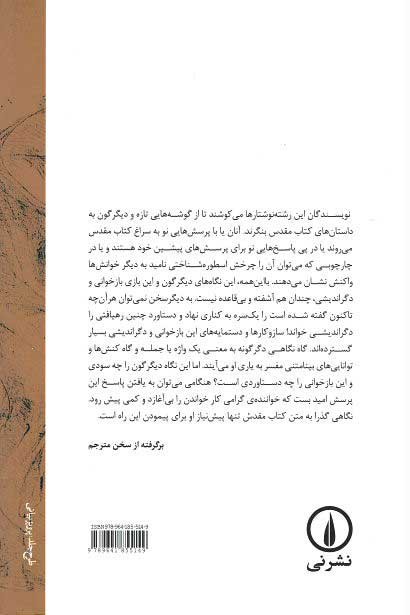 نویسندگان این رشته‌نوشتارها می‌کوشند تا از گوشه‌هایی تازه و دیگرگون به
داستان‌های کتاب مقدس بنگرند. آنان یا با پرسش‌هایی نو به سراغ کتاب مقدس
می‌روند یا در پی پاسخ‌هایی نو برای پرسش‌های پیشین خود هستند و یا در
چارچوبی که می‌توان آن را چرخش اسطوره‌شناختی نامید به دیگر خوانش‌ها
واکنش نشان می‌دهند. بااین‌همه، این نگاه‌های دیگرگون و این بازی بازخوانی و
دگراندیشی، چندان هم آشفته و بی‌قاعده نیست. به دیگرسخن نمی‌توان هرآن‌چه
تاکنون گفته شده است را یک‌سره به کناری نهاد و دستاورد چنین رهیافتی را
دگراندیشی خواند! سازوکارها و دستمایه‌های این بازخوانی و دگراندیشی بسیار
گسترده‌اند. گاه نگاهی دگرگونه به معنی یک واژه یا جمله و گاه کنش‌ها و
توانایی‌های بینامتنی مفسر به یاری او می‌آیند. اما این نگاه دیگرگون را چه سودی
و این بازخوانی را چه دستاوردی است؟ هنگامی می‌توان به یافتن پاسخ این
پرسش امید بست که خواننده‌ی گرامی کار خواندن را بی‌آغازد و کمی پیش رود.
نگاهی گذرا به متن کتاب مقدس تنها پیش‌نیاز او برای پیمودن این راه است.
برگرفته از سخن مترجم
ISBN 978-964-185-514-9
9 789641 855149
نشرنی
طرح جلد: پرویز بیانی